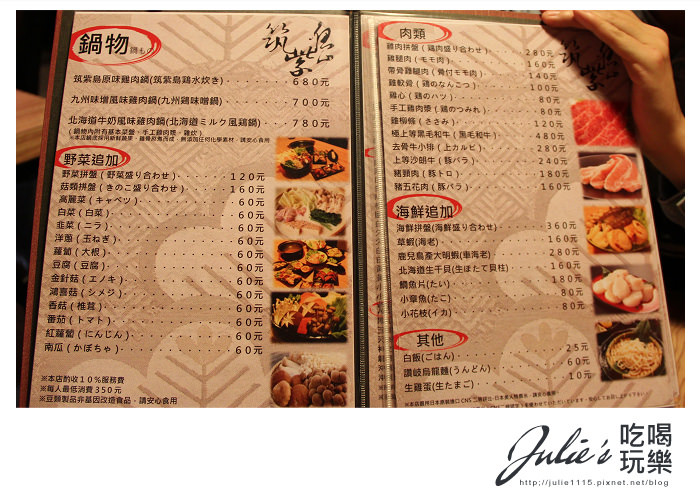 鍋物 鍋もの
筑紫島
筑紫島原味雞肉鍋(筑紫島鶏水炊き)‧‧‧‧‧‧680元
九州味增風味雞肉鍋(九州鶏味噌鍋)‧‧‧‧‧‧700元
北海道牛奶風味雞肉鍋(北海道ミルク風鶏鍋)‧‧‧780元
野菜追加
野菜拼盤(野菜盛り合わせ)‧‧‧‧‧‧120元
菇類拼盤(きのこ盛り合わせ)‧‧‧‧‧‧160元
高麗菜(キャベツ)‧‧‧‧‧‧60元
白菜(白菜)‧‧‧‧‧‧60元
韭菜(ニラ)‧‧‧‧‧‧60元
洋蔥(玉ねぎ)‧‧‧‧‧‧60元
蘿蔔(大根)‧‧‧‧‧‧60元
豆腐(豆腐)‧‧‧‧‧‧60元
金針菇(エノキ)‧‧‧‧‧‧60元
鴻喜菇(シメジ)‧‧‧‧‧‧60元
香菇(椎茸)‧‧‧‧‧‧60元
番茄(トマト)‧‧‧‧‧‧60元
紅蘿蔔(にんじん)‧‧‧‧‧‧60元
南瓜(かぼちゃ)‧‧‧‧‧‧60元
※本店酌收10%服務費
※每人最低消費350元
※豆類製品非基因改造食品、請安心食用
肉類
筑紫島
雞肉拼盤(鶏肉盛り合わせ)‧‧‧‧280元
雞腿肉(モモ肉)‧‧‧‧160元
帶骨雞腿肉(骨付モモ肉)‧‧‧‧140元
雞軟骨(鶏のなんこつ)‧‧‧‧100元
雞心(鶏のハツ)‧‧‧‧80元
手工雞肉漿(鶏のつみれ)‧‧‧‧80元
雞柳條(ささみ)‧‧‧‧120元
極上等黑毛和牛(黒毛和牛)‧‧‧‧480元
去骨牛小排(上カルビ)‧‧‧‧280元
上等沙朗牛(豚バラ)‧‧‧‧240元
豬頸肉(豚トロ)‧‧‧‧180元
豬五花肉(豚バラ)‧‧‧‧160元
海鮮追加
海鮮拼盤(海鮮盛り合わせ)‧‧‧‧360元
草蝦(海老)‧‧‧‧160元
鹿兒島產大明蝦(車海老)‧‧‧‧280元
北海道生干貝(生ほたて貝柱)‧‧‧‧160元
鯛魚片(たい)‧‧‧‧180元
小章魚(たこ)‧‧‧‧80元
小花枝(イカ)‧‧‧‧80元
其他
白飯(ごはん)‧‧‧‧25元
讚岐烏龍麵(うんどん)‧‧‧‧60元
生雞蛋(生たまご)‧‧‧‧10元
Julie's 吃喝玩樂
http://julie1115.pixnet.net/blog